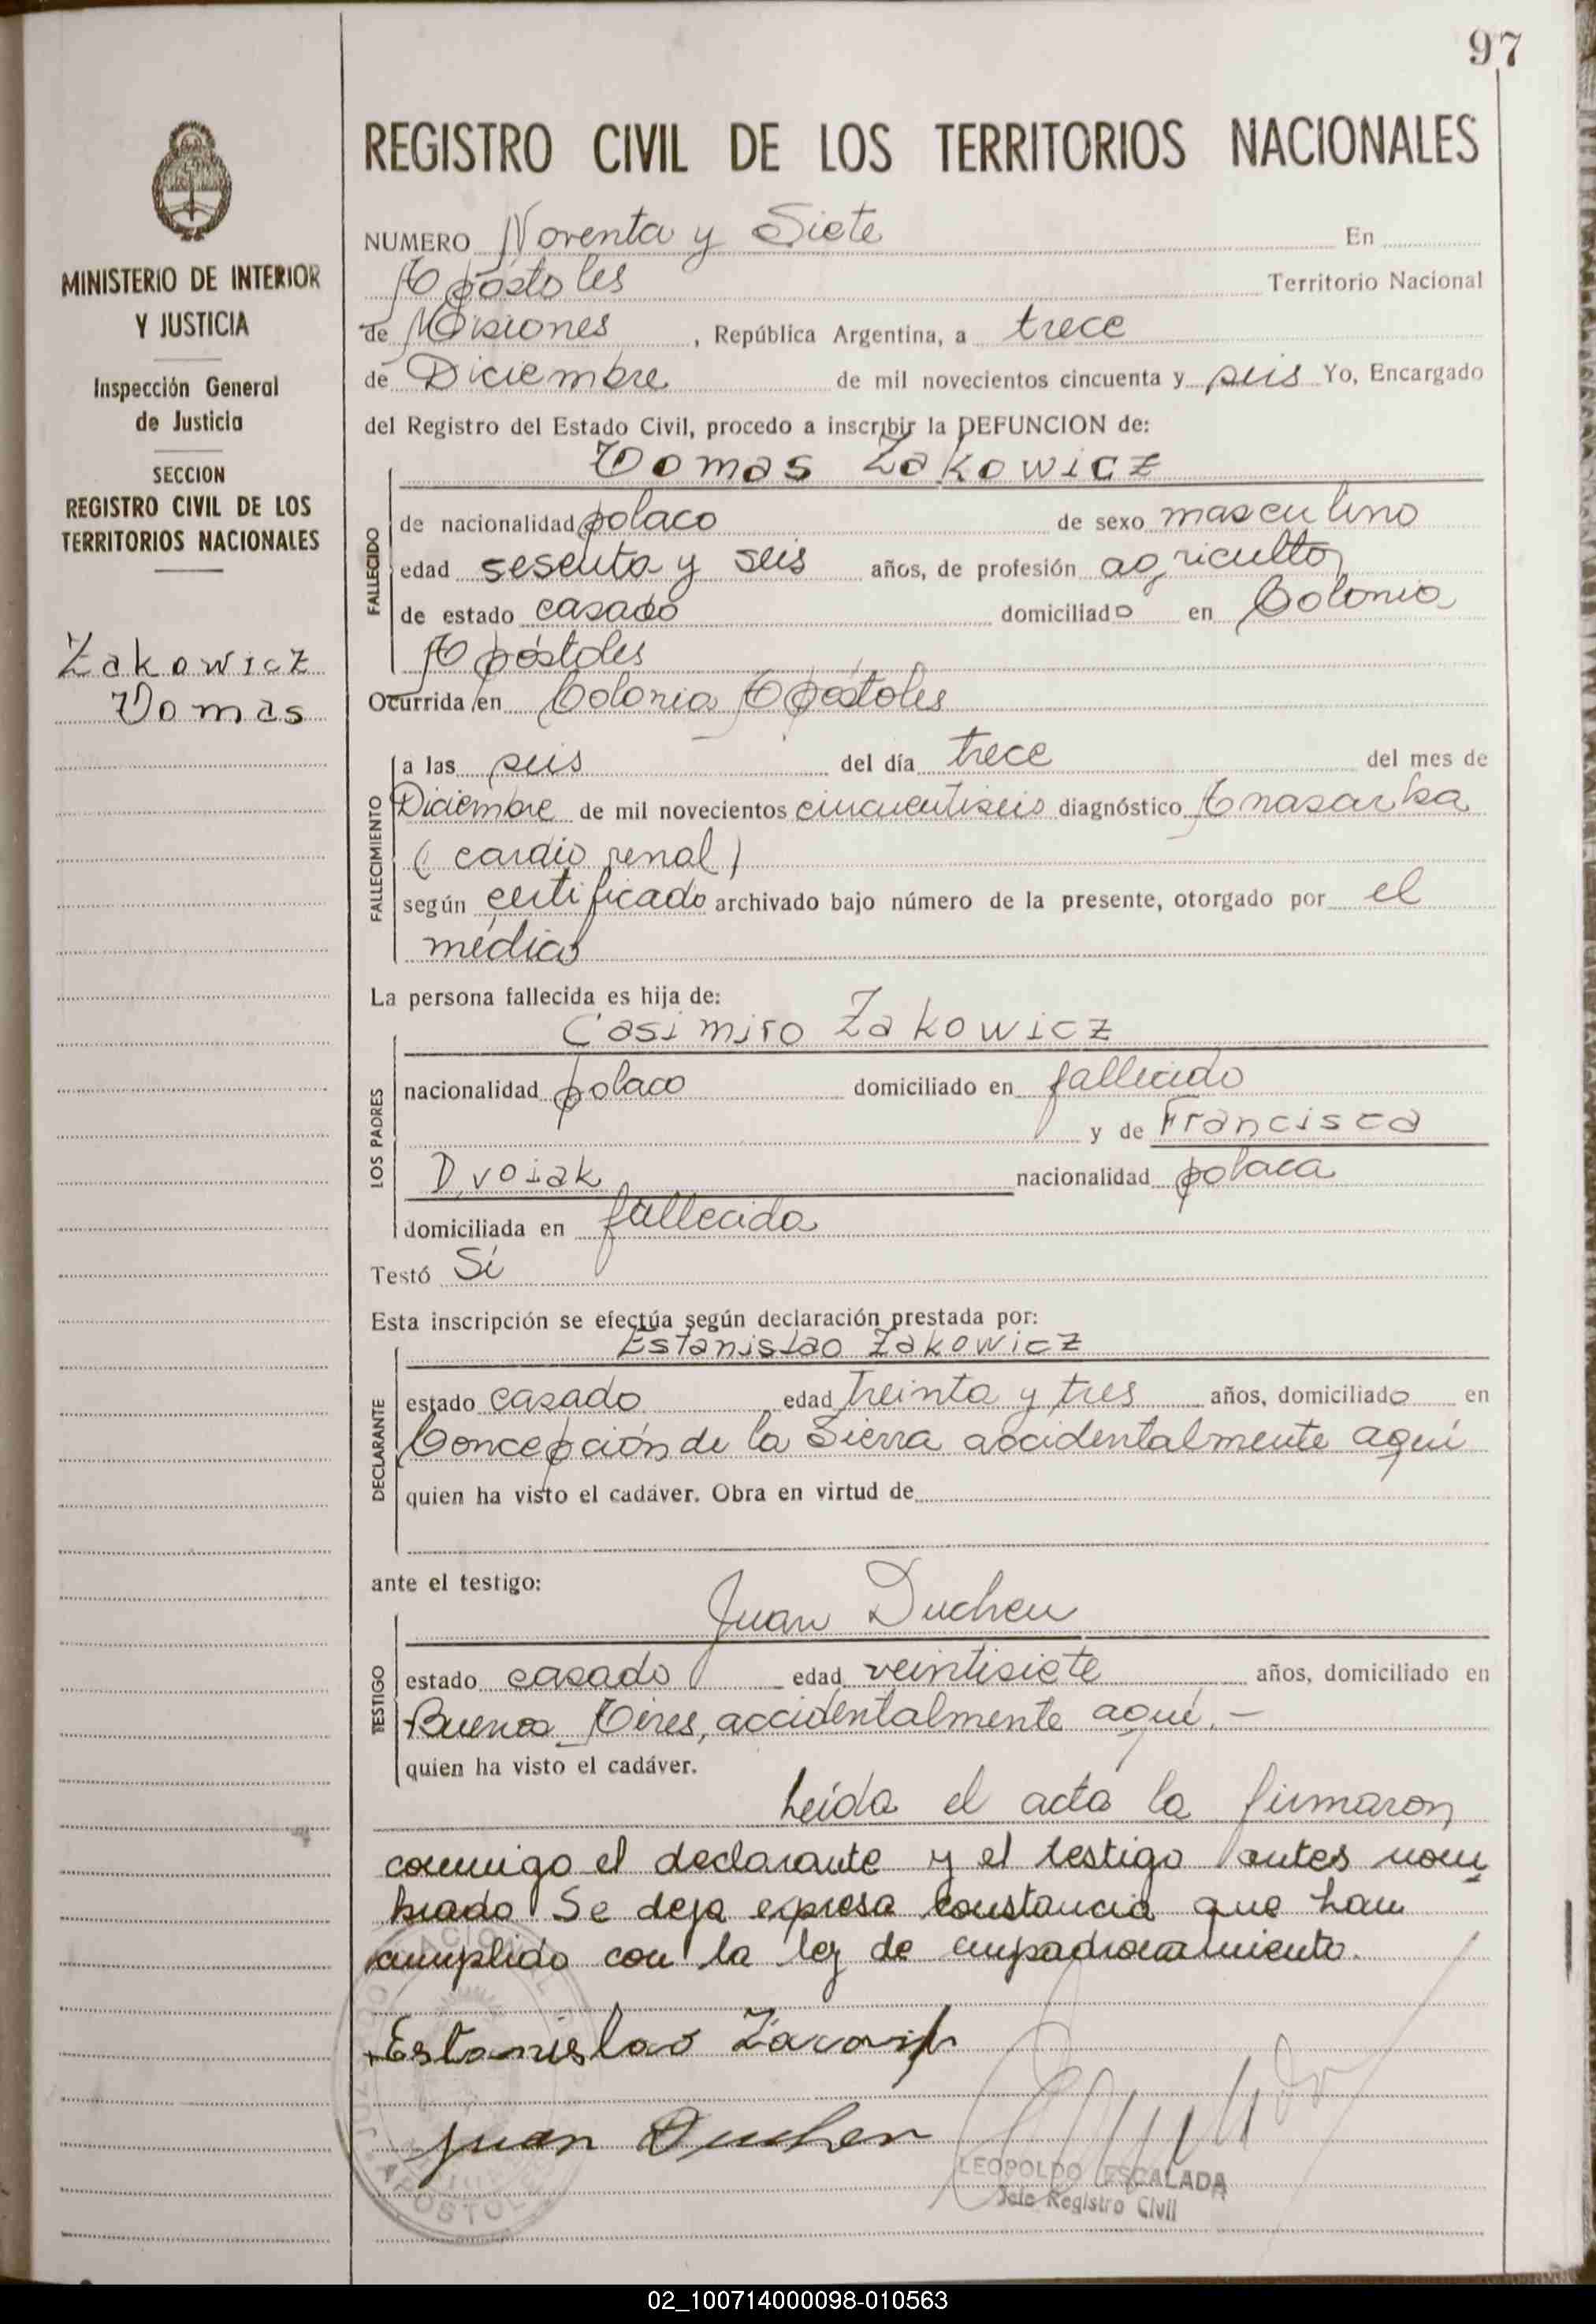 97
REGISTRO CIVIL DE LOS TERRITORIOS NACIONALES
MINISTERIO DE INTERIOR
Y JUSTICIA
Inspección General
de Justicia
SECCION
REGISTRO CIVIL DE LOS
TERRITORIOS NACIONALES
Zakowicz
Tomas
NUMERO Noventa y Siete En
Apóstoles Territorio Nacional
de Misiones, República Argentina, a trece
de Diciembre de mil novecientos cincuenta y seis Yo, Encargado
del Registro del Estado Civil, procedo a inscribir la DEFUNCION de:
Tomas Zakowicz
FALLECIDO
de nacionalidad polaco de sexo masculino
edad sesenta y seis años, de profesión agricultor
de estado casado domiciliado en Colonia
Apóstoles
Ocurrida en Colonia Apóstoles
FALLECIMIENTO
a las seis del día trece del mes de
Diciembre de mil novecientos cincuentiseis diagnóstico Anasarka
(cardio renal)
según certificado archivado bajo número de la presente, otorgado por el
médico
La persona fallecida es hija de:
Casimiro Zakowicz
LOS PADRES
nacionalidad polaco domiciliado en fallecido
y de Francisca
Dvoiak nacionalidad polaca
domiciliada en fallecida
Testó Sí
Esta inscripción se efectúa según declaración prestada por:
Estanislao Zakowicz
DECLARANTE
estado casado edad treinta y tres años, domiciliado en
Concepción de la Sierra accidentalmente aquí
quien ha visto el cadáver. Obra en virtud de
ante el testigo:
Juan Duchen
TESTIGO
estado casado edad veintisiete años, domiciliado en
Buenos Aires, accidentalmente aquí.—
quien ha visto el cadáver.
Leída el acta la firmaron
conmigo el declarante y el testigo antes nom
brado Se deja expresa constancia que han
cumplido con la ley de empadronamiento.
Estanislao
Juan Duchen
LEOPOLDO ESCALADA
Jefe Registro Civil
APOSTOLES
02_100714000098-010563